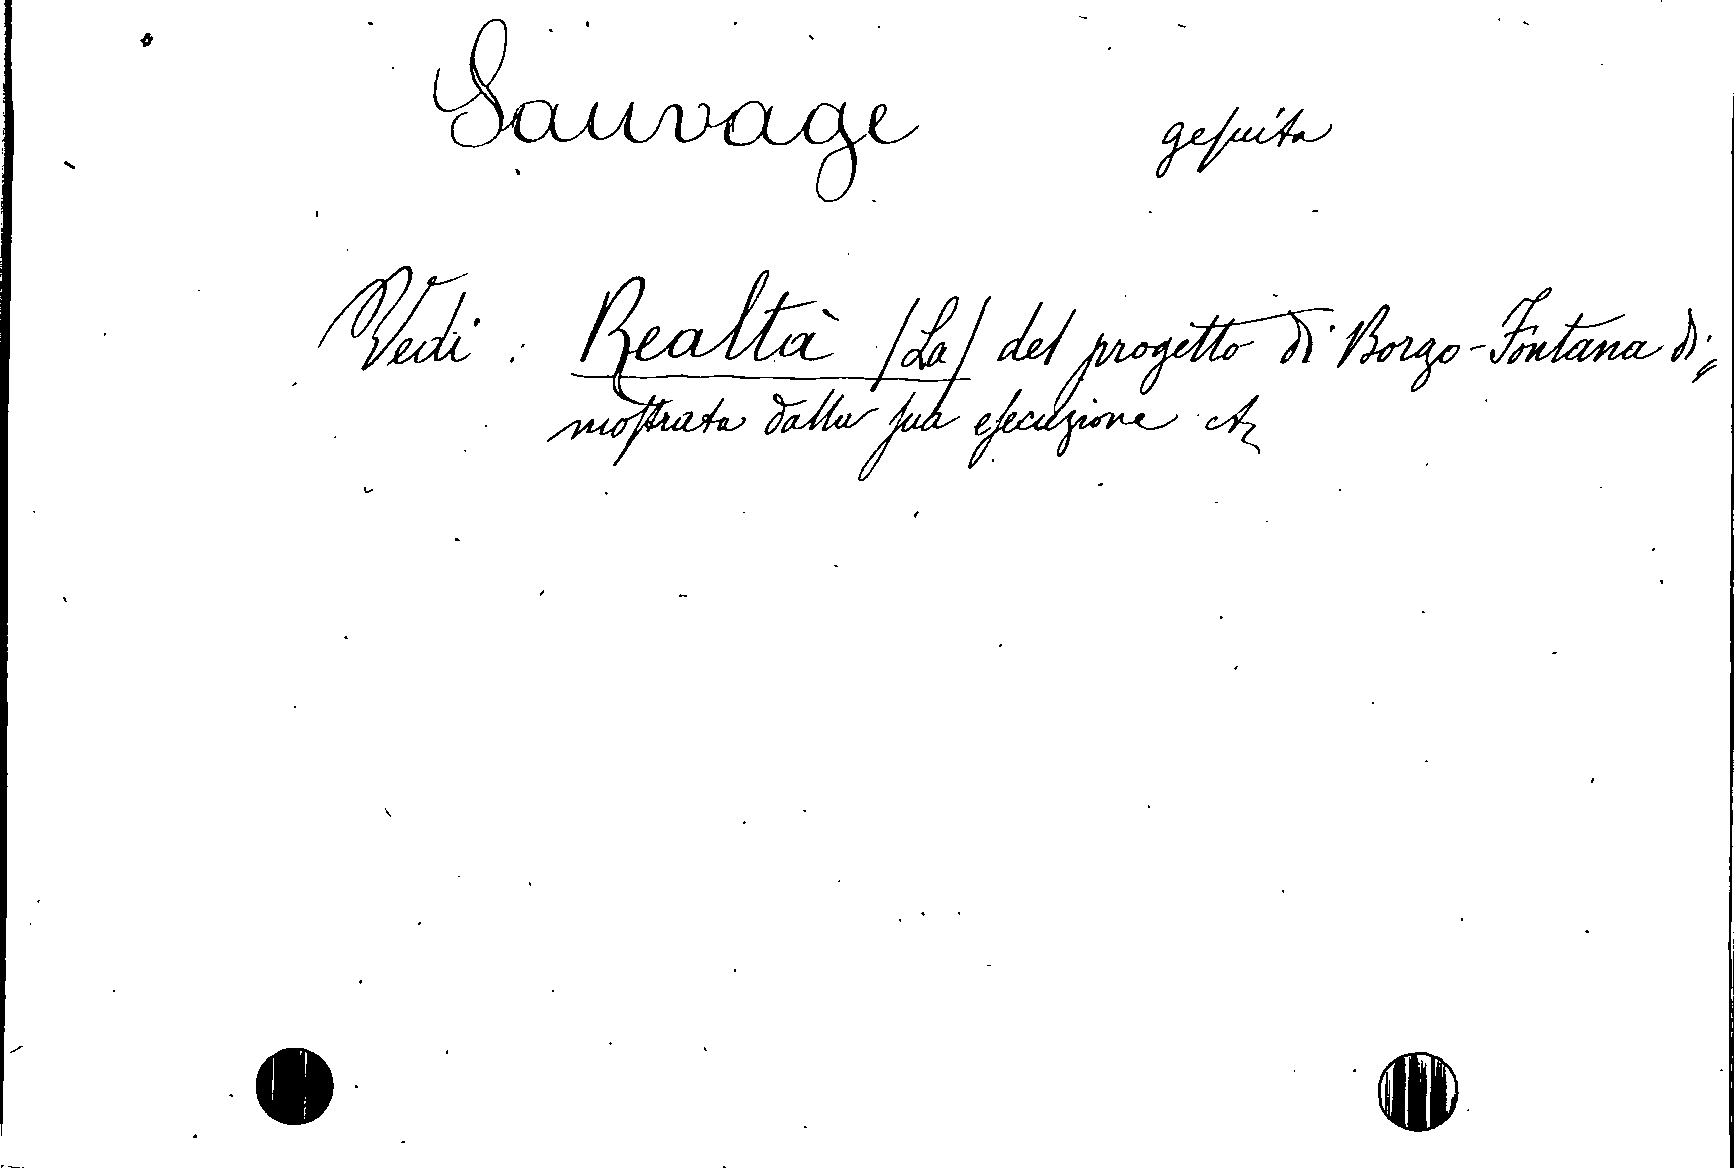 Sauvage gesuita
Vedi : Realtà /La/ del progetto di Borgo-Fontana di=
mostrata dalla sua esecuzione